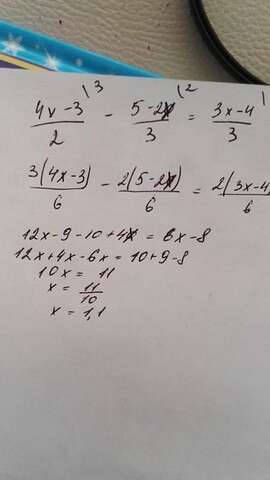 (4x-3)/2 \3 - (5-2x)/3 \2 = (3x-4)/3 \
3(4x-3)/6 - 2(5-2x)/6 = 2(3x-4)/6
12x-9-10+4x = 6x-8
12x+4x-6x = 10+9-8
10x = 11
x = 11/10
x = 1,1